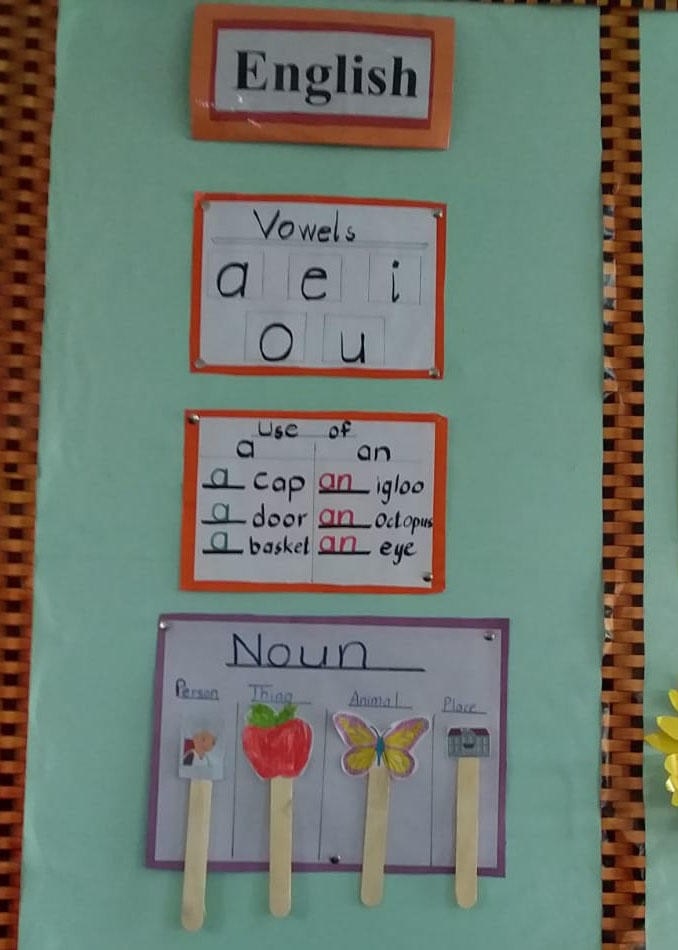 English
Vowels
a e i
o u
Use of
a an
a cap an igloo
a door an octopus
a basket an eye
Noun
Person Thing Animal Place